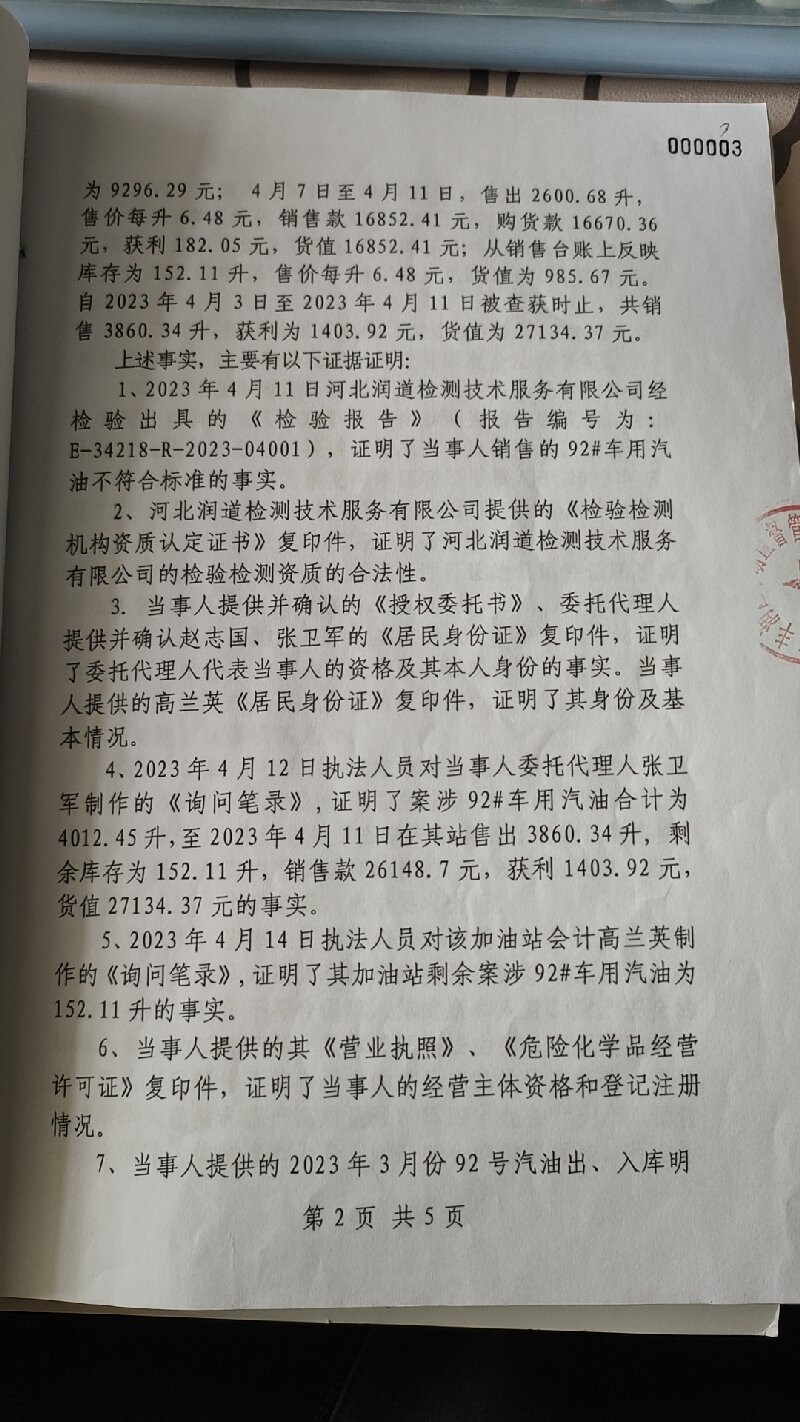 000003
为 9296.29 元； 4 月 7 日至 4 月 11 日，售出 2600.68 升，
售价每升 6.48 元，销售款 16852.41 元，购货款 16670.36
元，获利 182.05 元，货值 16852.41 元；从销售台账上反映
库存为 152.11 升，售价每升 6.48 元，货值为 985.67 元。
自 2023 年 4 月 3 日至 2023 年 4 月 11 日被查获时止，共销
售 3860.34 升，获利为 1403.92 元，货值为 27134.37 元。
上述事实，主要有以下证据证明：
1、2023 年 4 月 11 日河北润道检测技术服务有限公司经
检验出具的《检验报告》（报告编号为：
E-34218-R-2023-04001），证明了当事人销售的 92#车用汽
油不符合标准的事实。
2、河北润道检测技术服务有限公司提供的《检验检测
机构资质认定证书》复印件，证明了河北润道检测技术服务
有限公司的检验检测资质的合法性。
3. 当事人提供并确认的《授权委托书》、委托代理人
提供并确认赵志国、张卫军的《居民身份证》复印件，证明
了委托代理人代表当事人的资格及其本人身份的事实。当事
人提供的高兰英《居民身份证》复印件，证明了其身份及基
本情况。
4、2023 年 4 月 12 日执法人员对当事人委托代理人张卫
军制作的《询问笔录》,证明了案涉 92#车用汽油合计为
4012.45 升,至 2023 年 4 月 11 日在其站售出 3860.34 升，剩
余库存为 152.11 升，销售款 26148.7 元，获利 1403.92 元，
货值 27134.37 元的事实。
5、2023 年 4 月 14 日执法人员对该加油站会计高兰英制
作的《询问笔录》,证明了其加油站剩余案涉 92#车用汽油为
152.11 升的事实。
6、当事人提供的其《营业执照》、《危险化学品经营
许可证》复印件，证明了当事人的经营主体资格和登记注册
情况。
7、当事人提供的 2023 年 3 月份 92 号汽油出、入库明
第 2 页 共 5 页